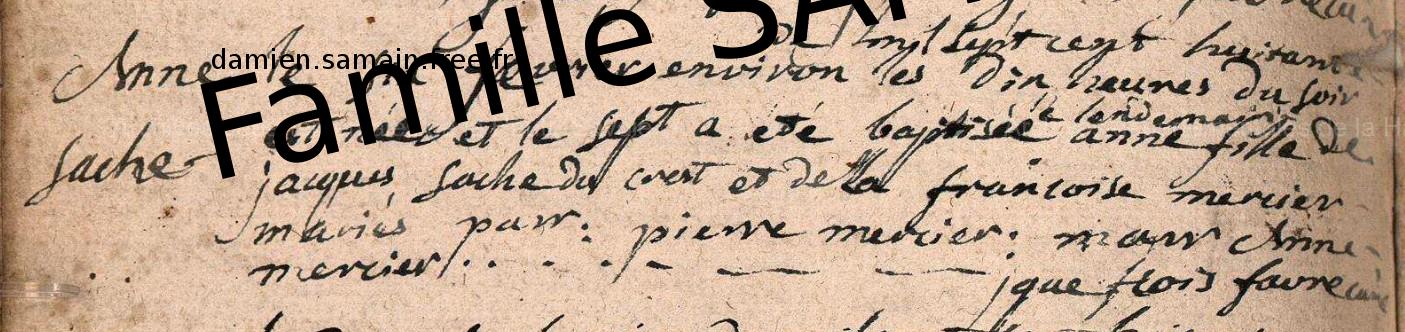 damien.samain.free.fr
Famille
de mylsept cept huitante
Anne le environ les dix heures du soir
est née et le sept a eté baptisée le lendemain anne fille de
sache jacques sache du crest et de la francoise mercier
mariés parr: pierre mercier: marr Anne
mercier
jque frois favre curé